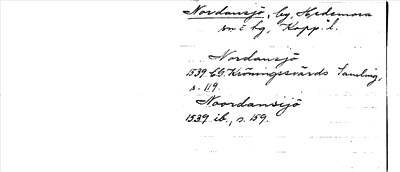 Nordansjö, by, Hedemora
sn o. by, Kopp. l.
Nordansjö
1539 C.G. Kröningssvärds Samling,
s. 119.
Noordansijö
1539 ib., s. 159.